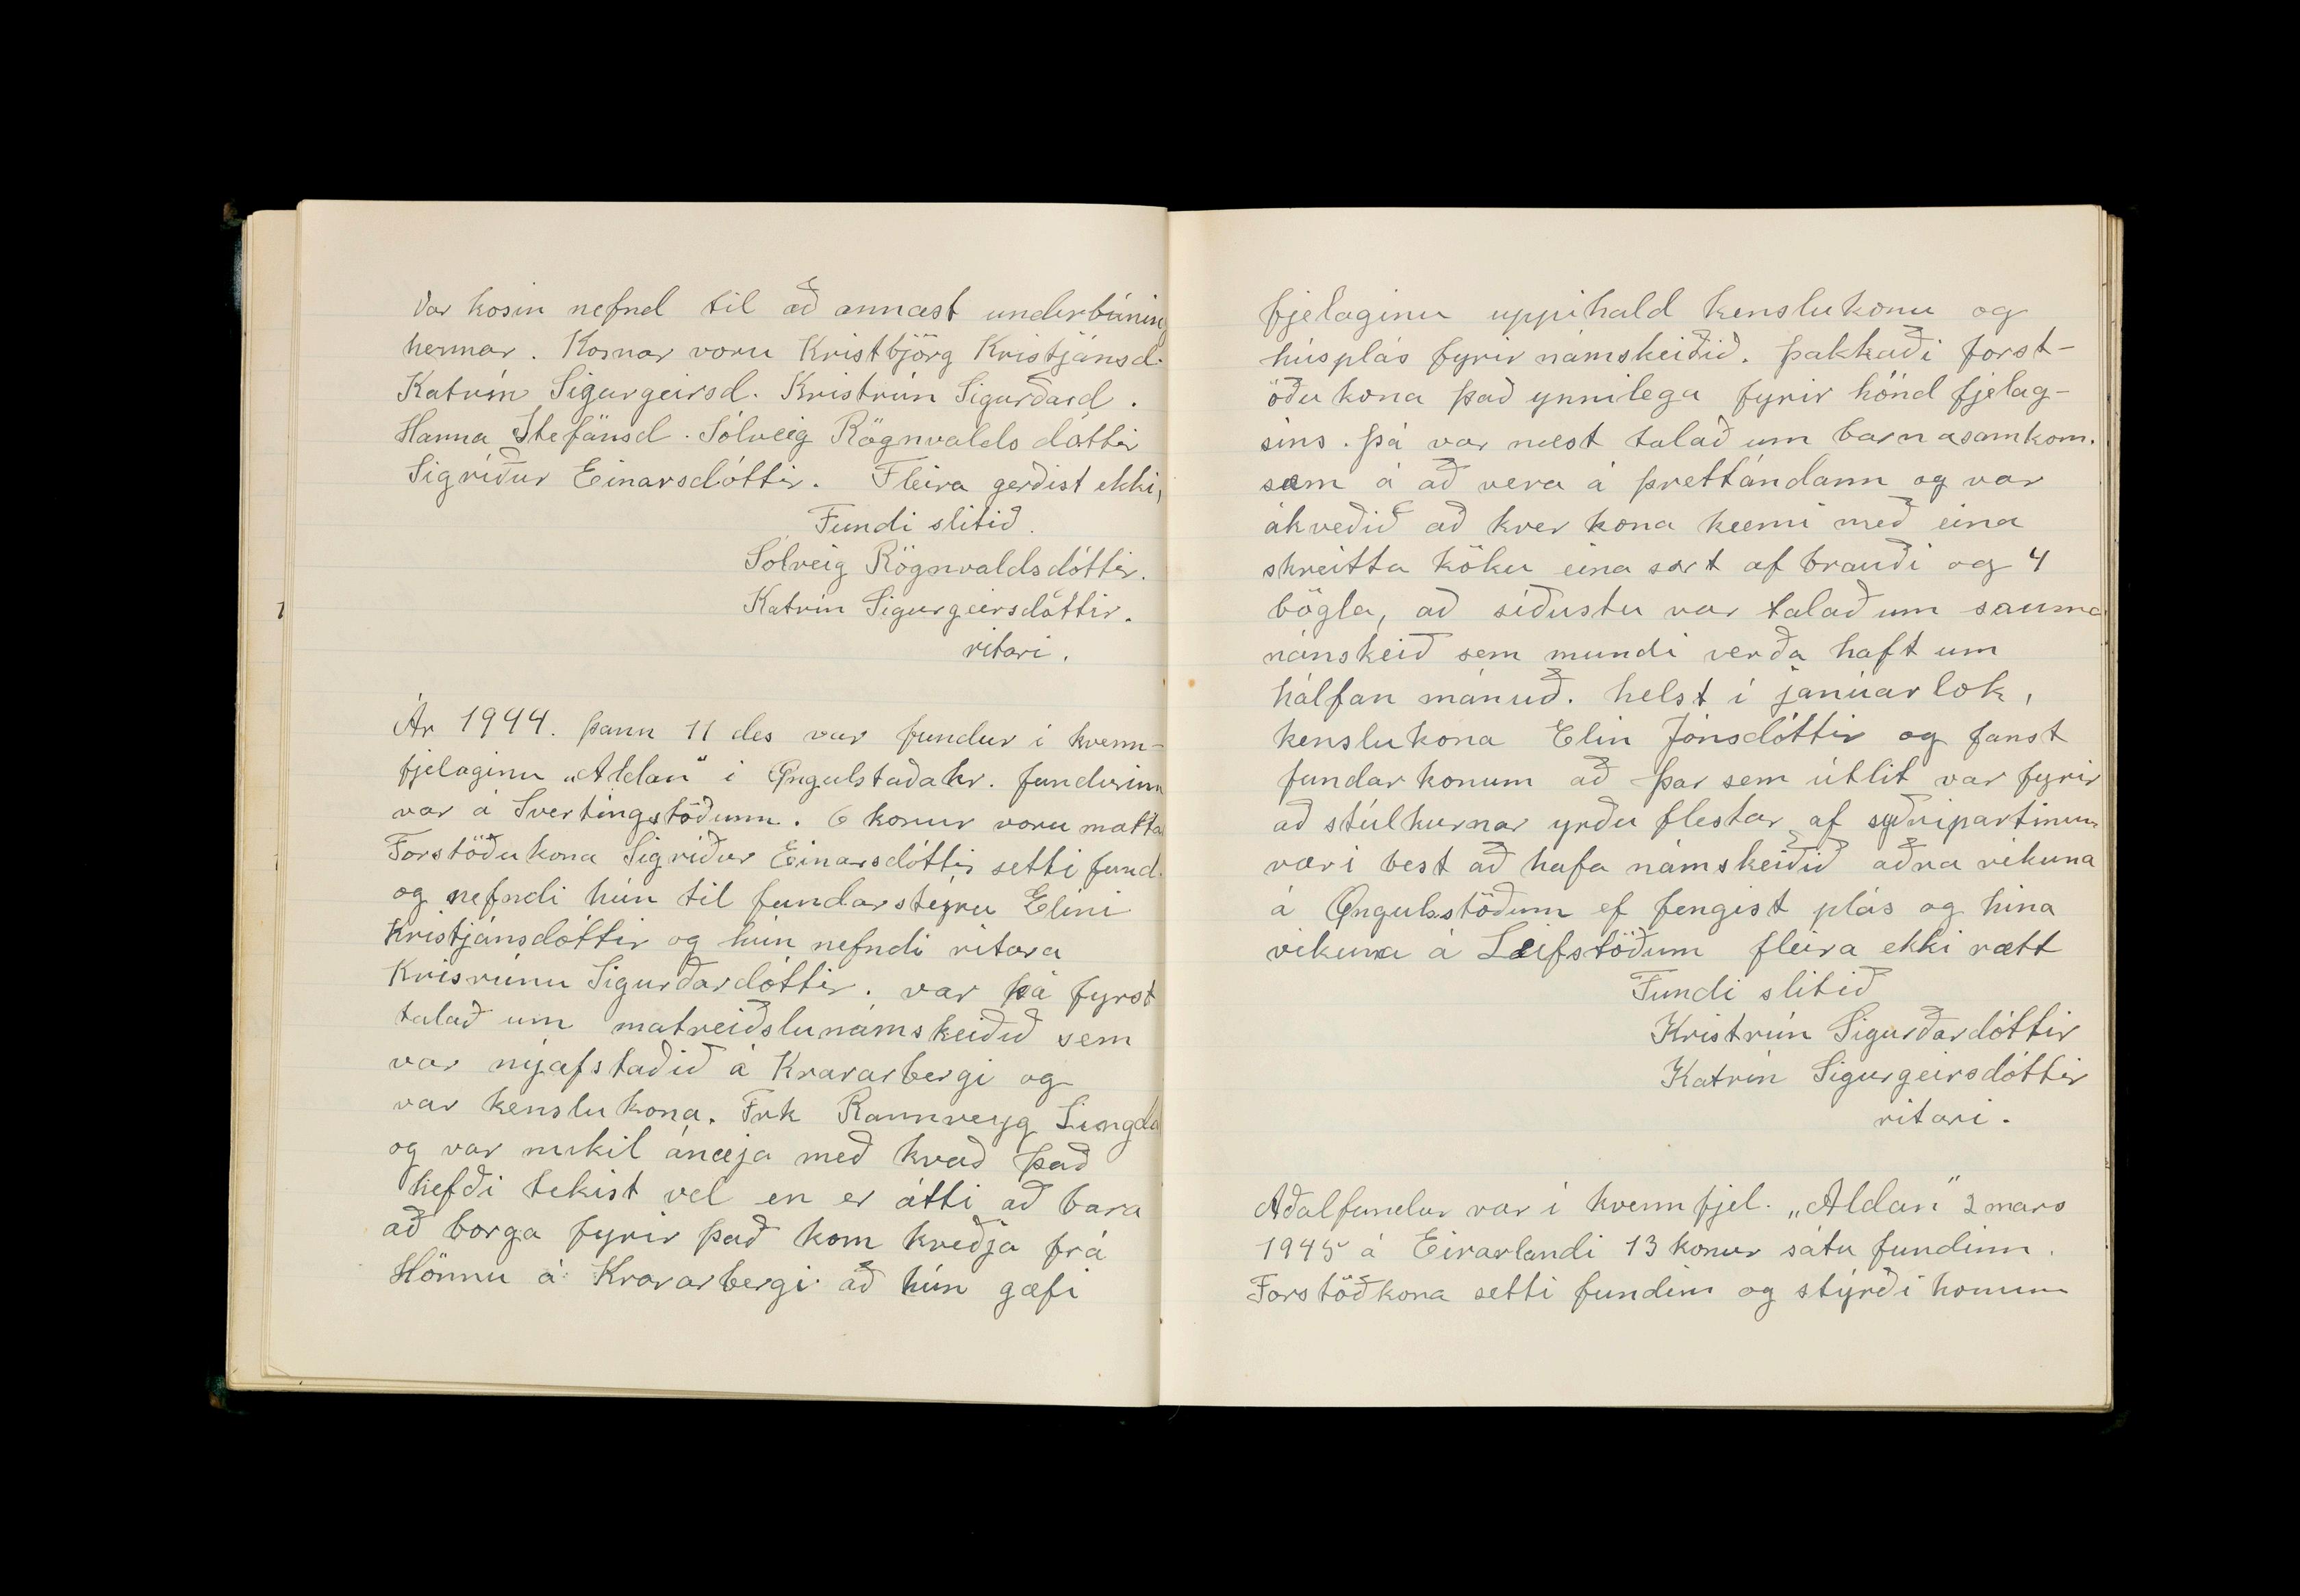 Var kosin nefnd til að annast underbúning
hennar. Kosnar voru Kristbjörg Kristjánsd.
Katrín Sigurgeirsd. Kristrún Sigurðard.
Hanna Stefánsd. Sólveig Rögnvalds dóttir
Sigríður Einarsdóttir. Fleira gerðist ekki,
Fundi slitið.
Sólveig Rögnvaldsdóttir.
Katrín Sigurgeirsdóttir.
ritari.
Ár 1944. þann 11 des var fundur í kvenn-
fjelaginu „Aldan" í Öngulstaðahr. fundurinn
var á Svertingstöðum. 6 konur voru mætta
Forstöðukona Sigríður Einarsdóttir setti fund.
og nefndi hún til fundarstýru Elini
Kristjánsdóttir og hún nefndi ritara
Krisrúnu Sigurðardóttir. var þá fyrst
talað um matreiðslunámskeiðið sem
var nýafstaðið á Kvavarbergi og
var kenslukona. Frk Rannveyg
og var mikil ánæja með hvað það
hefði tekist vel en er átti að bara
að borga fyrir það kom kveðja frá
Hönnu á Kvavarbergi að hún gæfi
fjelaginu uppihald kenslukonu og
húsplás fyrir námskeiðið. þakkaði forst-
öðukona það ynnilega fyrir hönd fjelag-
sins. þá var næst talað um barnasamkom.
sem á að vera á þrettándann og var
ákveðið að hver kona kæmi með eina
skreitta köku eina sort af brauði og 4
bögla, að síðustu var talað um sauma
námskeið sem mundi verða haft um
hálfan mánuð. helst í janúarlok,
kenslukona Elin Jónsdóttir og fanst
fundarkonum að þar sem útlit var fyrir
að stúlkurnar yrðu flestar af syðripartinum
væri best að hafa námskeiðið aðra vikuna
á Öngulsstöðum ef fengist plás og hina
vikuna á Leifstöðum fleira ekki rætt
Fundi slitið
Kristrún Sigurðardóttir
Katrín Sigurgeirsdóttir
ritari.
Aðalfundur var í kvennfjel. „Aldan" 2 mars
1945 á Eirarlandi 13 konur sátu fundinn.
Forstöðkona setti fundin og stýrði honum